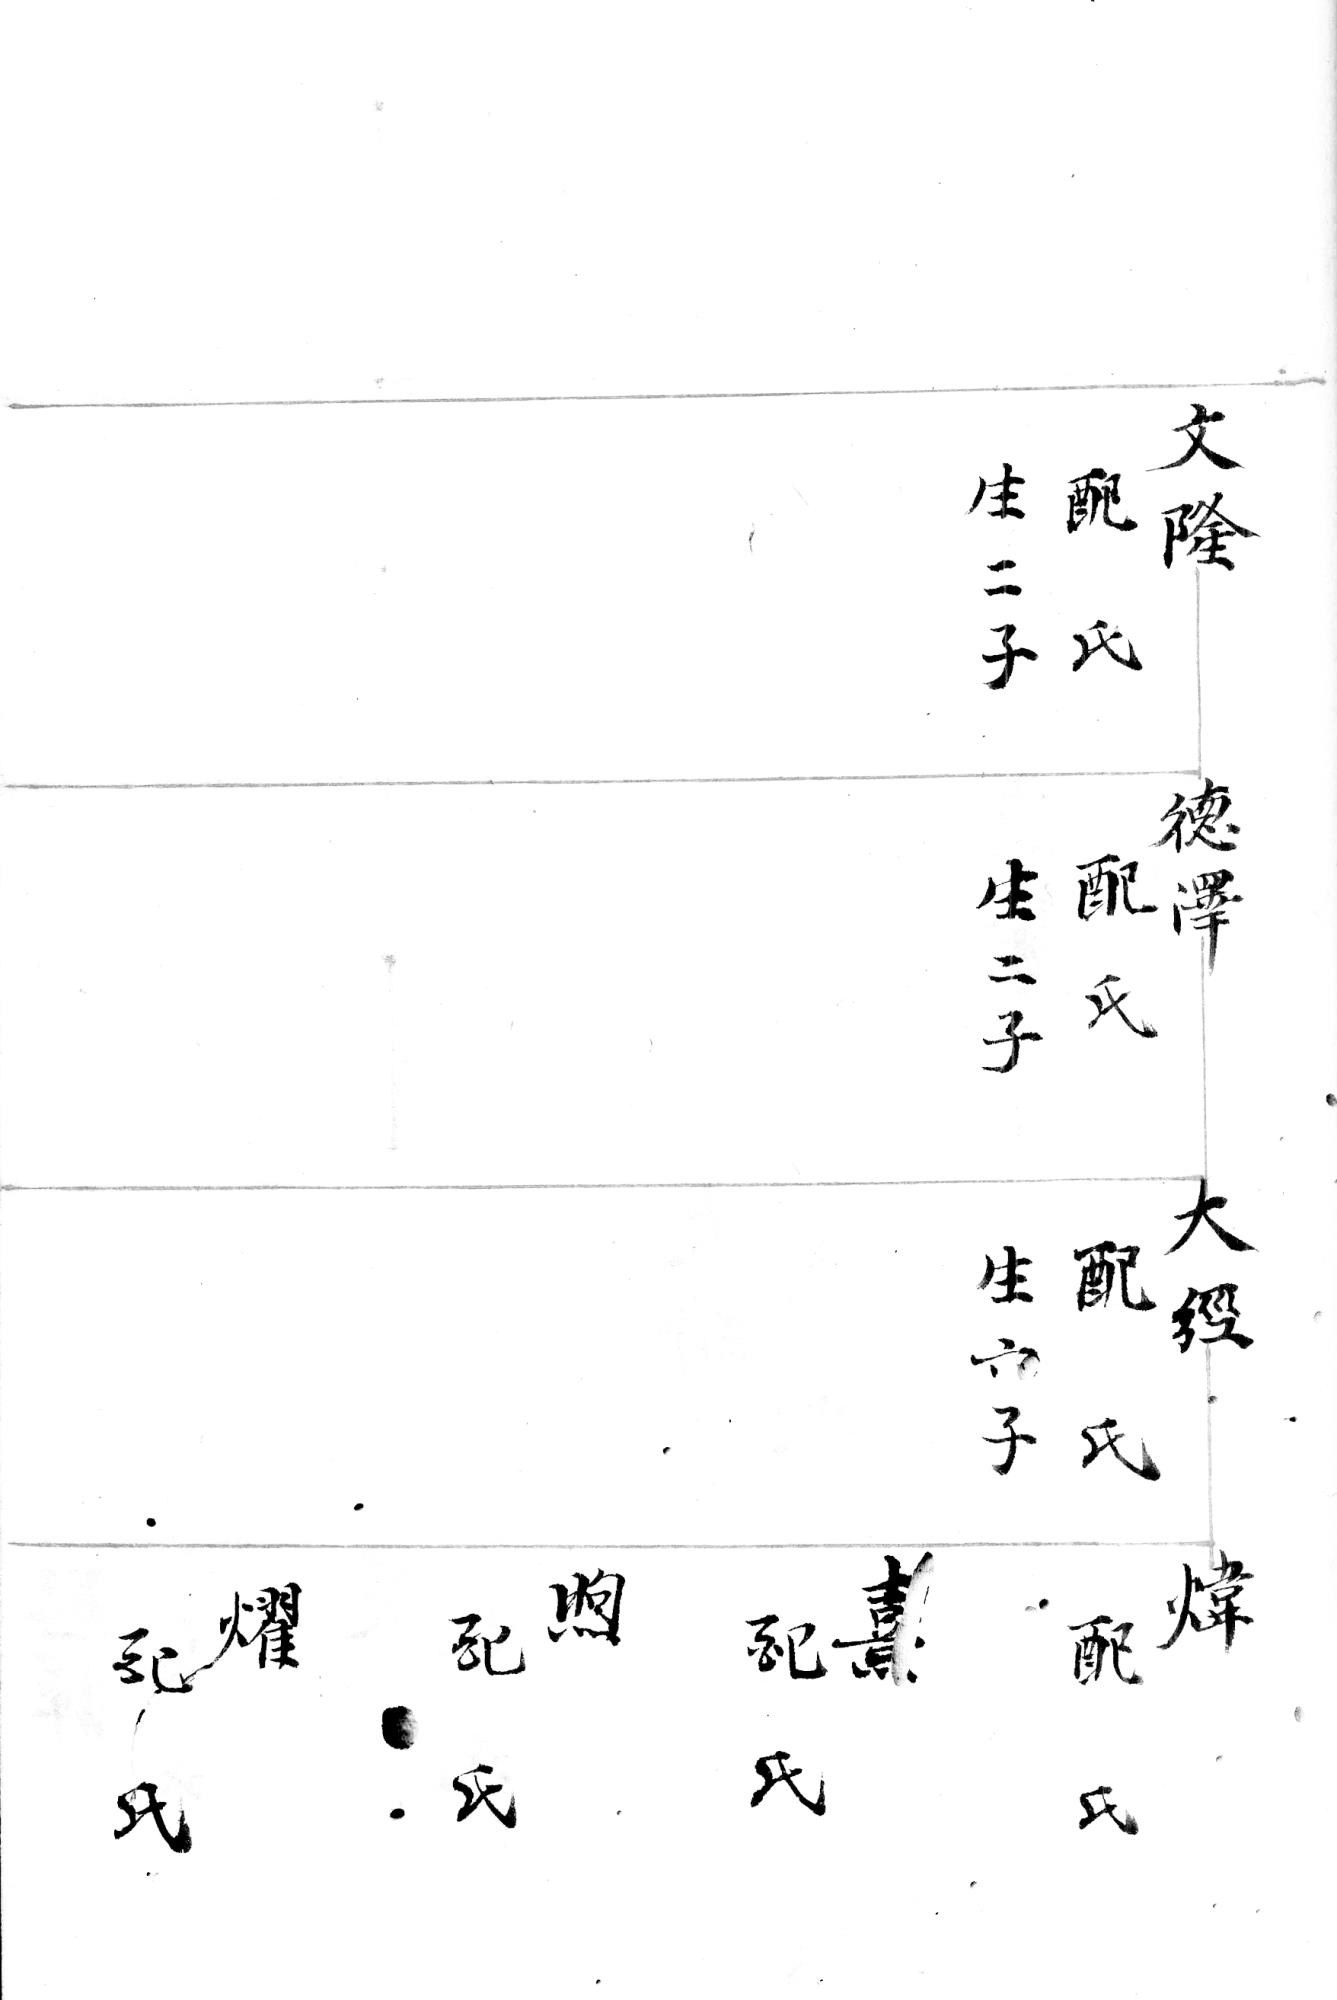 文隆
配 氏
生二子
德澤
配 氏
生二子
大經
配 氏
生六子
煒
配 氏
配 氏
煦
配 氏
燿
配 氏